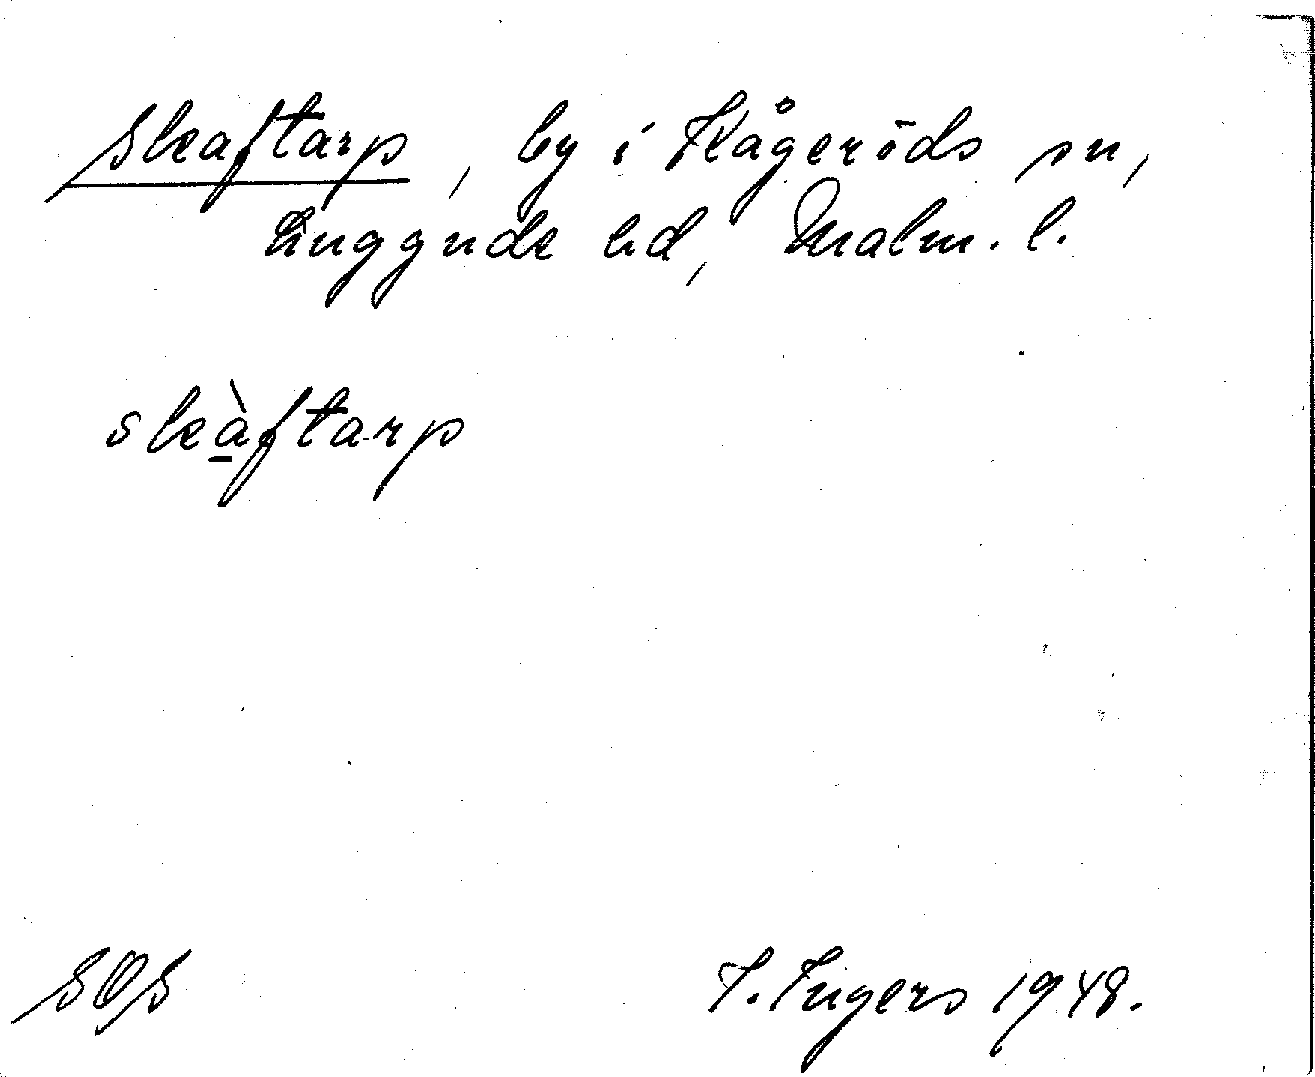 Skaftarp, by i Kågeröds sn,
Luggude hd, Malm. l.
skàftarp
SOS
I. Ingers 1948.